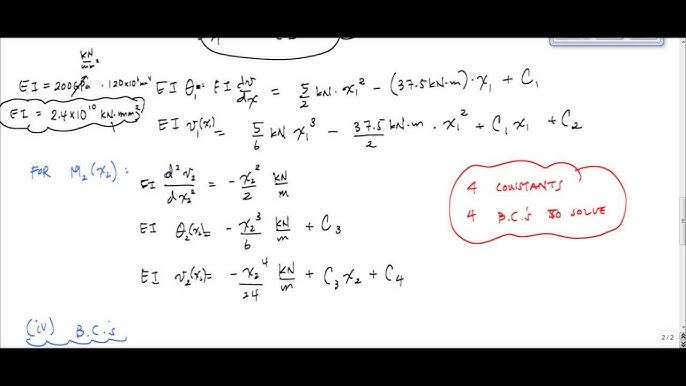 kN/mm²
EI = 200 GPa · 120×10⁶ mm⁴
EI = 2.4×10¹⁰ kN·mm²
EI θ₁ = EI dv/dx = 5/2 kN · x₁² - (37.5 kN·m) · x₁ + C₁
EI v₁(x₁) = 5/6 kN x₁³ - 37.5/2 kN·m · x₁² + C₁ x₁ + C₂
FOR M₂(x₂):
EI d²v₂/dx₂² = - x₂²/2 kN/m
EI θ₂(x₂) = - x₂³/6 kN/m + C₃
EI v₂(x₂) = - x₂⁴/24 kN/m + C₃ x₂ + C₄
4 CONSTANTS
4 B.C.'s TO SOLVE
(iv) B.C.'s
2 / 2